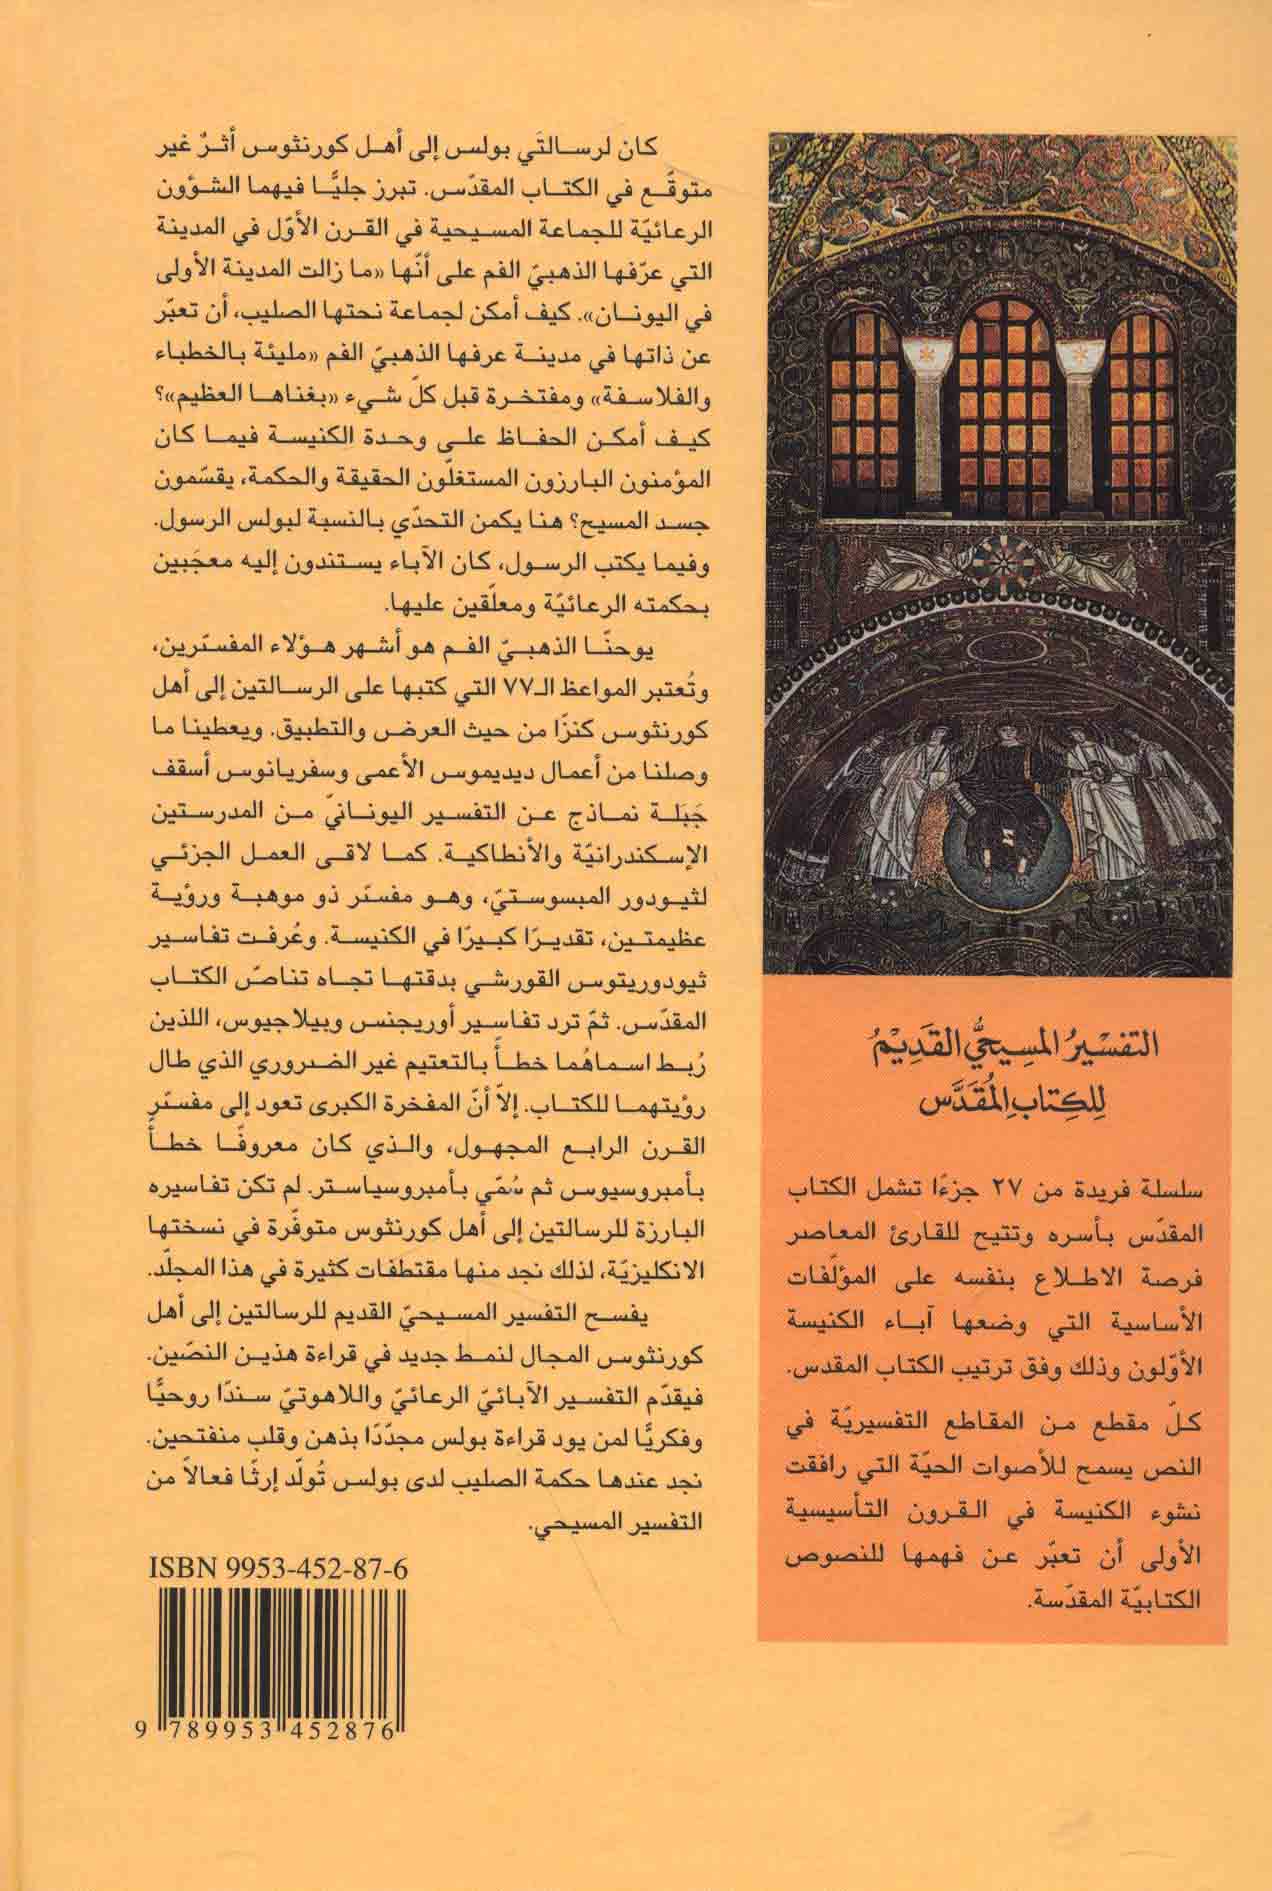 كان لرسالتَي بولس إلى أهل كورنثوس أثرٌ غير
متوقَّع في الكتاب المقدّس. تبرز جليًّا فيهما الشؤون
الرعائيّة للجماعة المسيحية في القرن الأوّل في المدينة
التي عرّفها الذهبيّ الفم على أنّها «ما زالت المدينة الأولى
في اليونان». كيف أمكن لجماعة نحتها الصليب، أن تعبّر
عن ذاتها في مدينة عرفها الذهبيّ الفم «مليئة بالخطباء
والفلاسفة» ومفتخرة قبل كلّ شيء «بغناها العظيم»؟
كيف أمكن الحفاظ على وحدة الكنيسة فيما كان
المؤمنون البارزون المستغلّون الحقيقة والحكمة، يقسّمون
جسد المسيح؟ هنا يكمن التحدّي بالنسبة لبولس الرسول.
وفيما يكتب الرسول، كان الآباء يستندون إليه معجَبين
بحكمته الرعائيّة ومعلّقين عليها.
يوحنّا الذهبيّ الفم هو أشهر هؤلاء المفسّرين،
وتُعتبر المواعظ الـ٧٧ التي كتبها على الرسالتين إلى أهل
كورنثوس كنزًا من حيث العرض والتطبيق. ويعطينا ما
وصلنا من أعمال ديديموس الأعمى وسفريانوس أسقف
جَبَلة نماذج عن التفسير اليونانيّ من المدرستين
الإسكندرانيّة والأنطاكية. كما لاقى العمل الجزئي
لثيودور المبسوستيّ، وهو مفسّر ذو موهبة ورؤية
عظيمتين، تقديرًا كبيرًا في الكنيسة. وعُرفت تفاسير
ثيودوريتوس القورشي بدقتها تجاه تناصّ الكتاب
المقدّس. ثمّ ترد تفاسير أوريجنس وبيلاجيوس، اللذين
رُبط اسماهُما خطأً بالتعتيم غير الضروري الذي طال
رؤيتهما للكتاب. إلاّ أنّ المفخرة الكبرى تعود إلى مفسّرِ
القرن الرابع المجهول، والذي كان معروفًا خطأً
بأمبروسيوس ثم سُمّي بأمبروسياستر. لم تكن تفاسيره
البارزة للرسالتين إلى أهل كورنثوس متوفّرة في نسختها
الانكليزيّة، لذلك نجد منها مقتطفات كثيرة في هذا المجلّد.
يفسح التفسير المسيحيّ القديم للرسالتين إلى أهل
كورنثوس المجال لنمط جديد في قراءة هذين النصّين.
فيقدّم التفسير الآبائيّ الرعائيّ واللاهوتيّ سندًا روحيًّا
وفكريًّا لمن يود قراءة بولس مجدّدًا بذهن وقلب منفتحين.
نجد عندها حكمة الصليب لدى بولس تُولّد إرثًا فعالاً من
التفسير المسيحي.
ISBN 9953-452-87-6
9 789953 452876
التفسْيرُ المسِيحيُّ القَدِيْمُ
لِلكِتابِ المُقَدَّس
سلسلة فريدة من ٢٧ جزءًا تشمل الكتاب
المقدّس بأسره وتتيح للقارئ المعاصر
فرصة الاطلاع بنفسه على المؤلّفات
الأساسية التي وضعها آباء الكنيسة
الأوّلون وذلك وفق ترتيب الكتاب المقدس.
كلّ مقطع من المقاطع التفسيريّة في
النص يسمح للأصوات الحيّة التي رافقت
نشوء الكنيسة في القرون التأسيسية
الأولى أن تعبّر عن فهمها للنصوص
الكتابيّة المقدّسة.